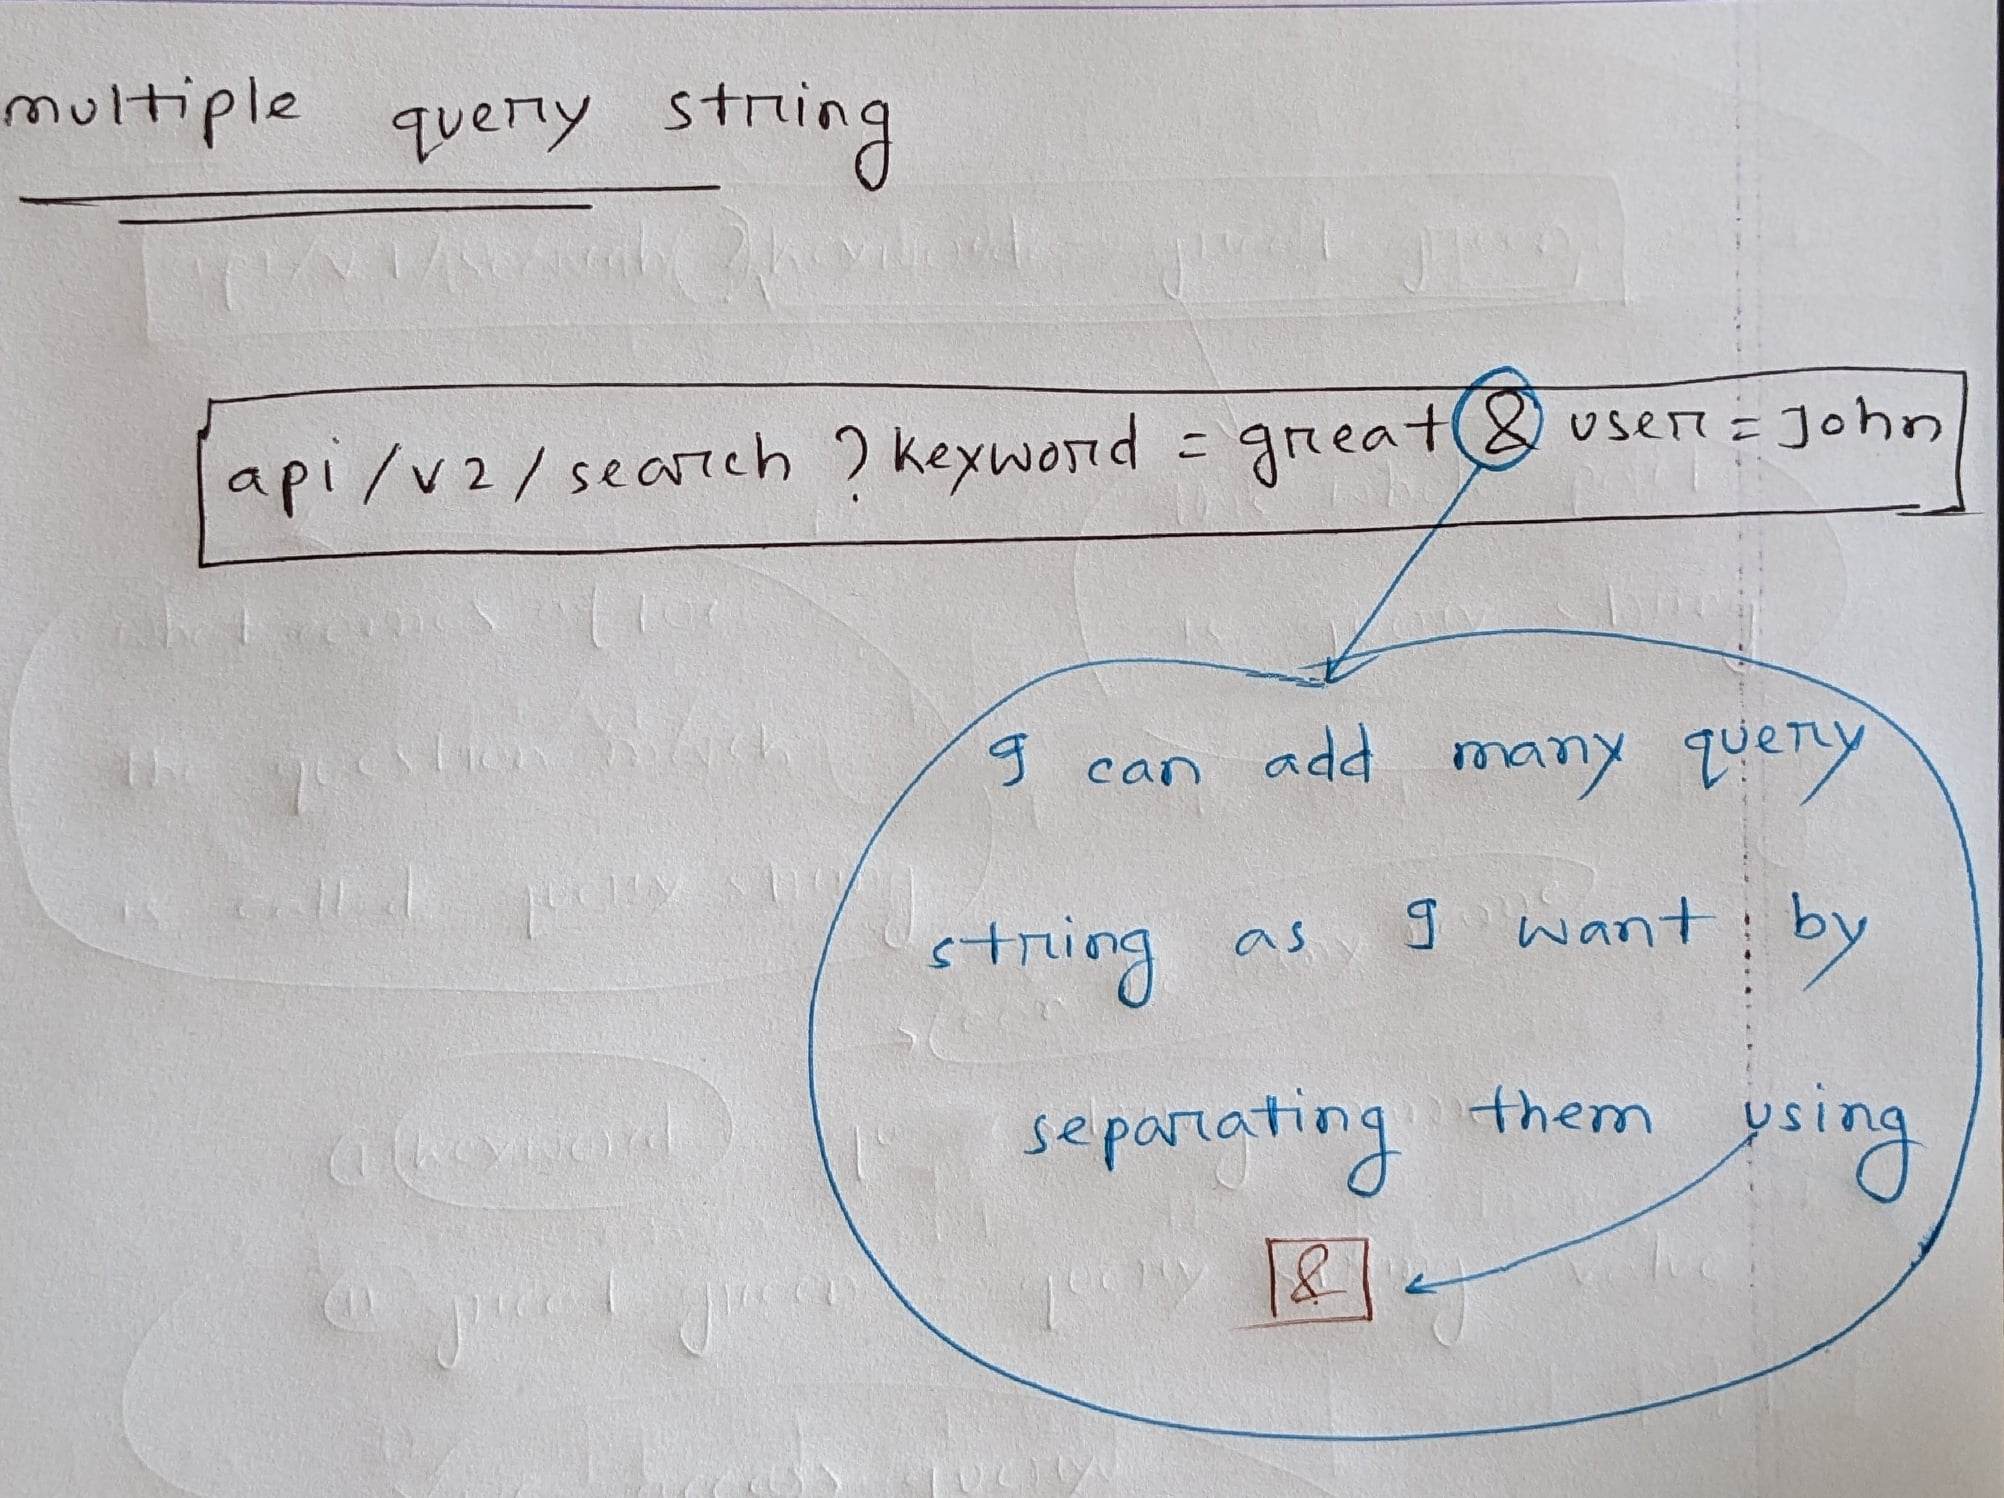 multiple query string
api/v2/search ?keyword = great & user = John
I can add many query
string as I want by
separating them using
&